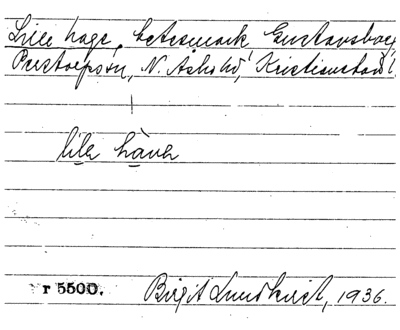 Lille hage, betesmark Gustavsborg,
Perstorpsön, N. Åsbo hd, Kristianstad l.
lila håva
r 5500. Birgit Lundkvist, 1936.